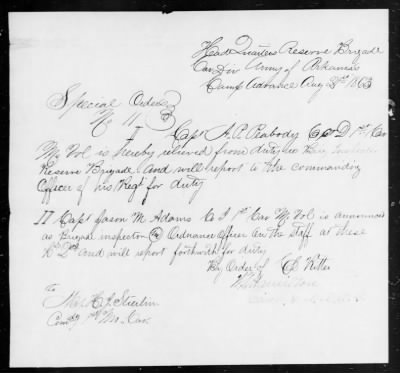 Head Quarters Reserve Brigade
Cav Div Army of Arkansas
Camp Advance Aug 1863
Special Orders
No 11
Capt A. P. Peabody Co D 1st Cav
Mo Vol is hereby relieved from duty as
Reserve Brigade and will report to the commanding
Officer of his Regt for duty
II Capt Jason M. Adams Co I 1st Cav Mo Vol is announced
as Brigade inspector & Ordnance Officer on the staff at these
Hd Qrs and will report forthwith for duty
By Order of Ritter
To
Maj
Comdg 1st Mo Cav